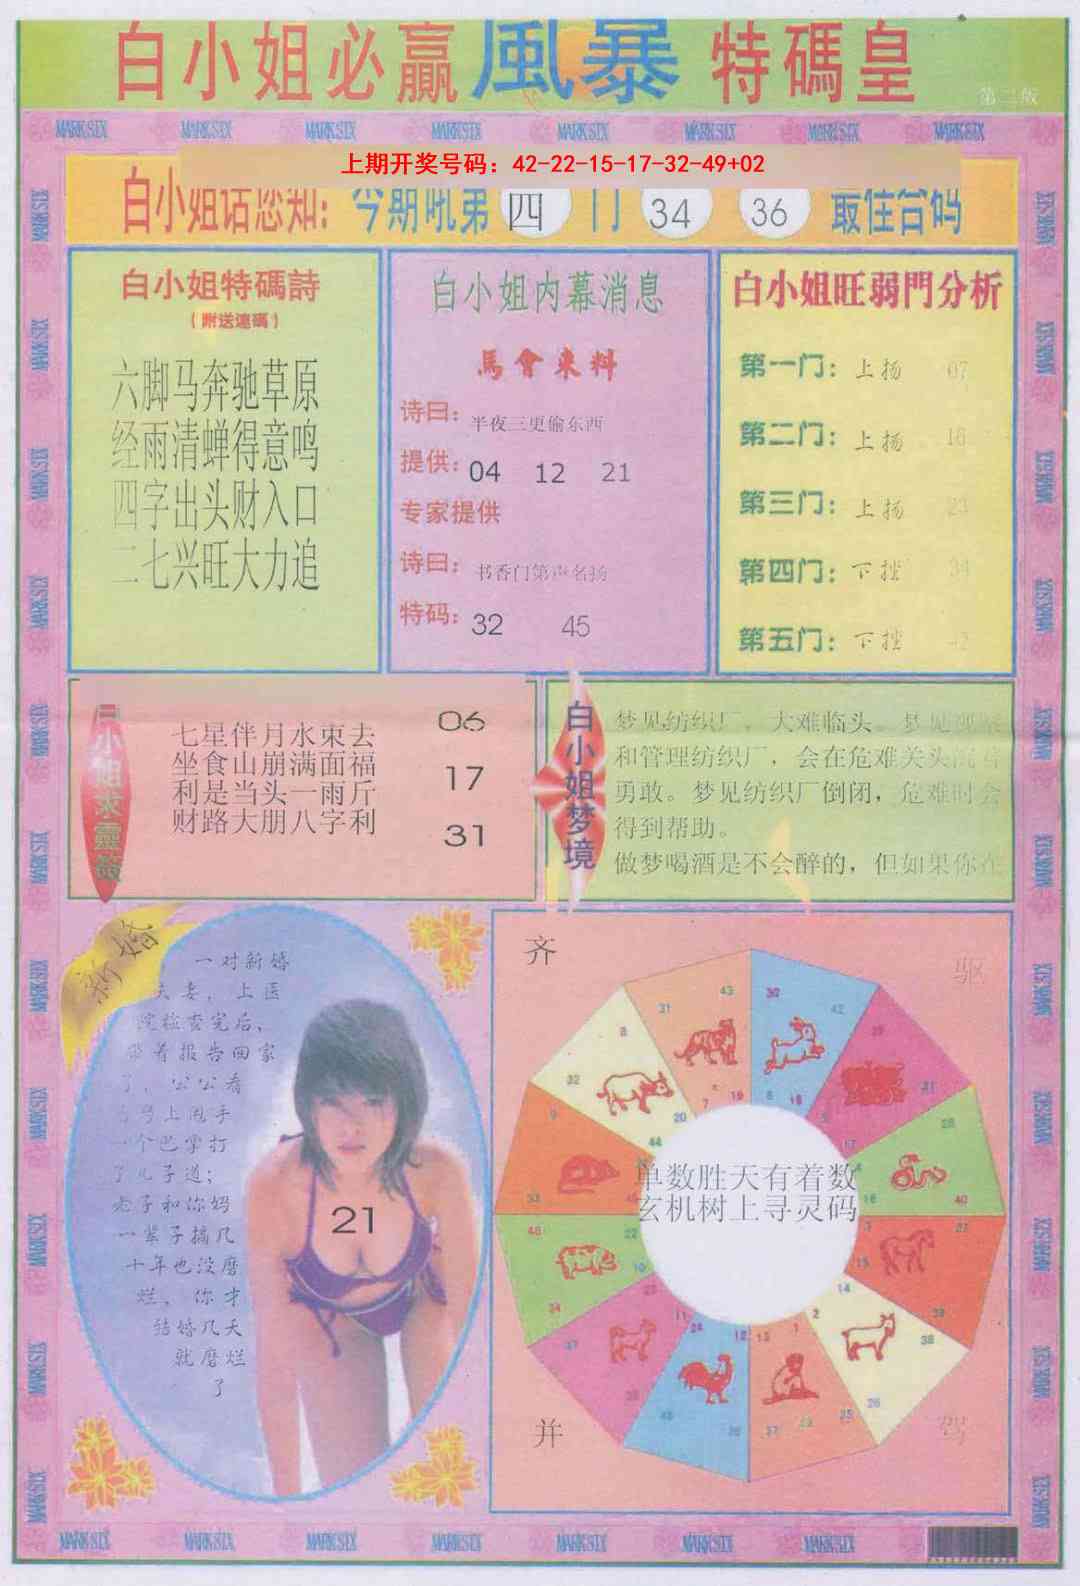 白小姐必赢風暴特碼皇
第二版
MARK SIX MARK SIX MARK SIX MARK SIX MARK SIX MARK SIX MARK SIX MARK SIX
上期开奖号码：42-22-15-17-32-49+02
白小姐话您知：今期吼第四门 34 36 最佳合码
白小姐特碼詩
（附送連碼）
六脚马奔驰草原
经雨清蝉得意鸣
四字出头财入口
二七兴旺大力追
白小姐内幕消息
馬會来料
诗曰：半夜三更偷东西
提供：04 12 21
专家提供
诗曰：书香门第声名扬
特码：32 45
白小姐旺弱門分析
第一门：上扬 07
第二门：上扬 16
第三门：上扬 23
第四门：下挫 34
第五门：下挫 42
白小姐求靈签
七星伴月水東去
坐食山崩满面福
利是当头一雨斤
财路大朋八字利
06
17
31
白小姐梦境
梦见纺织厂，大难临头。梦见
和管理纺织厂，会在危难关头
勇敢。梦见纺织厂倒闭，危难时会
得到帮助。
做梦喝酒是不会醉的，但如果你在
新婚
一对新婚
夫妻，上医
院检查完后，
带着报告回家
了，公公看
上甩手
一个巴掌打
了儿子道：
老子和你妈
一辈子搞几
十年也没磨
烂，你才
结婚几天
就磨烂
了
21
齐
驱
单数胜天有着数
玄机树上寻灵码
并
驾
MARK SIX MARK SIX MARK SIX MARK SIX MARK SIX MARK SIX MARK SIX